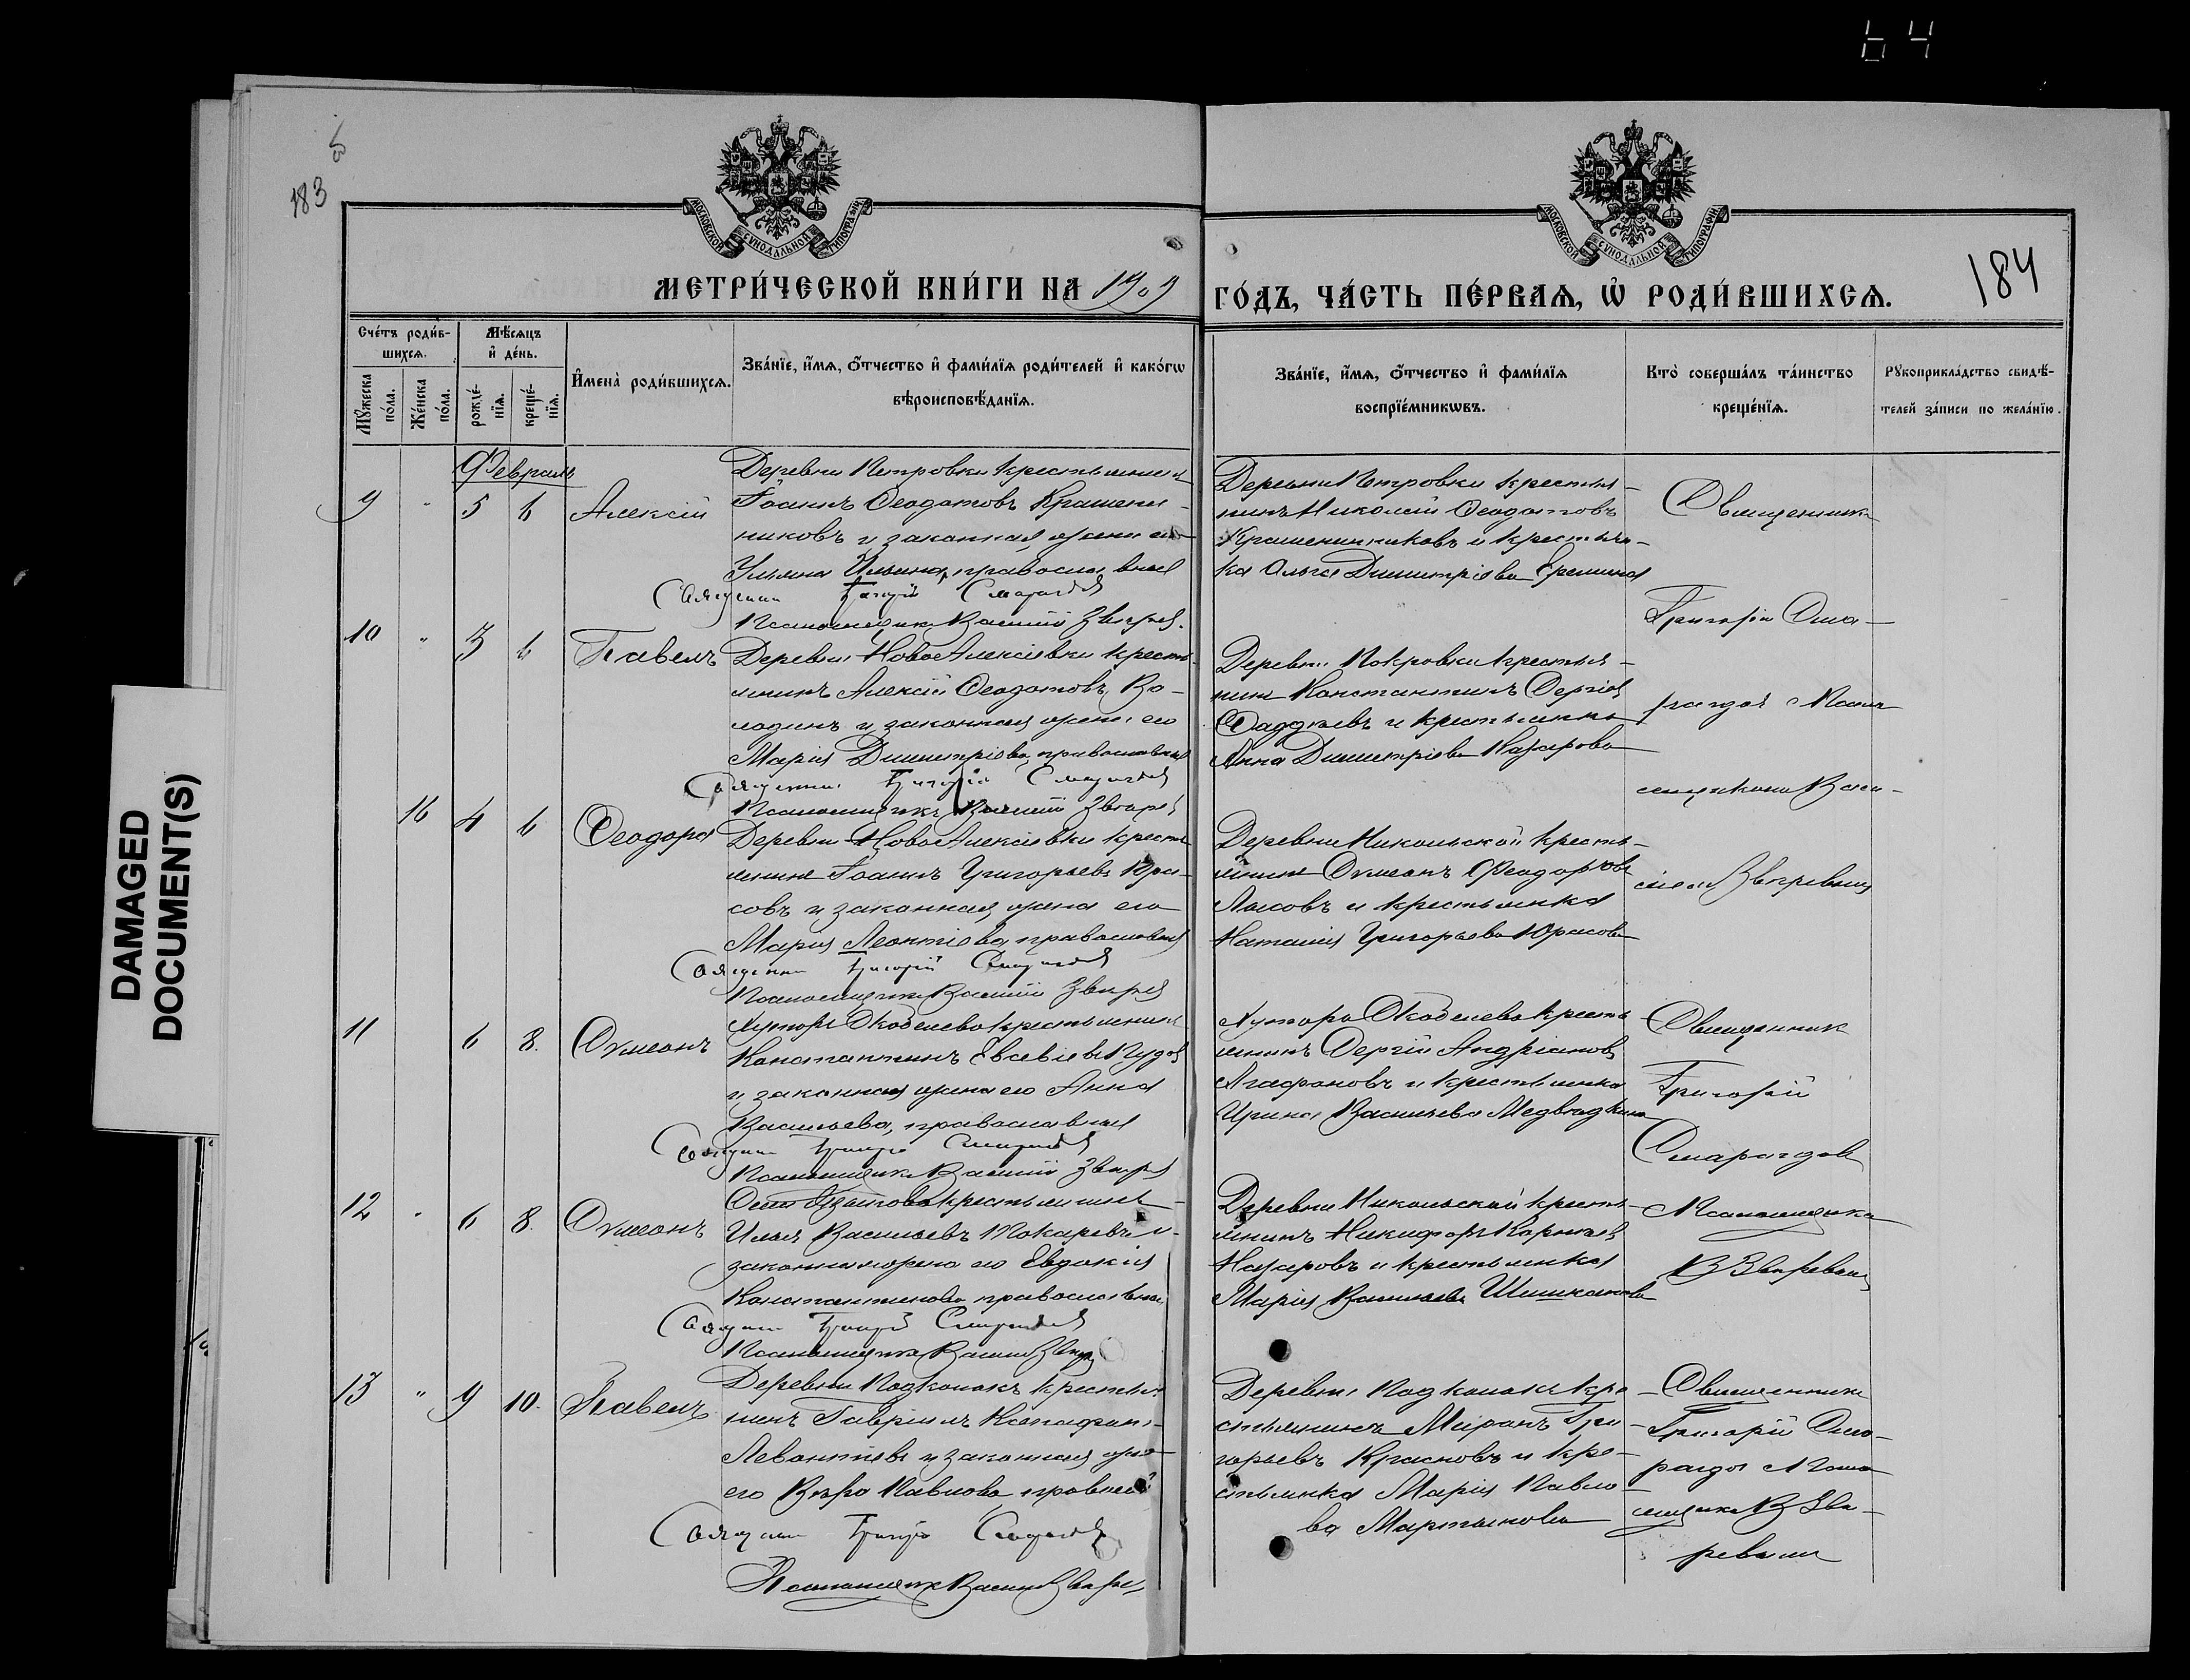 64
183
184
МОСКОВСКОЙ СУНОДАЛЬНОЙ ТИПОГРАФІИ
МОСКОВСКОЙ СУНОДАЛЬНОЙ ТИПОГРАФІИ
МЕТРИ́ЧЕСКОЙ КНИ́ГИ НА 1909
ГО́ДЪ, ЧА́СТЬ ПЕ́РВАѦ, Ѡ҆ РОДИ́ВШИХСѦ.
Сче́тъ роди́в-
шихсѧ.
Мѣ́сѧцъ
и҆ де́нь.
Мꙋ́жеска
по́ла.
Же́нска
по́ла.
рожде́-
нїѧ.
креще́-
нїѧ.
И҆мена̀ роди́вшихсѧ.
Зва́нїе, и҆́мѧ, ѻ҆́тчество и҆ фами́лїѧ роди́телей и҆ како́гѡ
вѣроисповѣ́данїѧ.
Зва́нїе, и҆́мѧ, ѻ҆́тчество и҆ фами́лїѧ
воспрїе́мникѡвъ.
Кто̀ соверша́лъ та́инство
креще́нїѧ.
Рꙋкоприкла́дство свидѣ́-
телей за́писи по жела́нїю.
Февраль
9 " 5 6 Алексій
Деревни Петровки крестьянинъ
Іоаннъ Ѳеодотовъ Крашени-
никовъ и законная жена его
Ульяна Ильина, православные
Священник Григорій Смарагдов
Псаломщикъ Василій Зверев
Деревни Петровки крестья-
нинъ Николай Ѳеодотовъ
Крашенинниковъ и крестьян-
ка Ольга Димитріева Еремина
Священникъ
Григорій Сма-
рагдов Псало-
мщикомъ Васи-
ліем Зверевым
10 " 3 6 Павелъ
Деревни НовоАлексіевки кресть-
янинъ Алексій Ѳеодотовъ Во-
лодинъ и законная жена его
Марія Димитріева, православные
Священник Григорій Смарагдов
Псаломщикъ Василій Зверев
Деревни Покровки крестья-
нинъ Константинъ Сергіев
Фаддѣевъ и крестьянка
Анна Димитріева Назарова
16 4 6 Ѳеодора
Деревни НовоАлексіевки кресть-
янинъ Іоаннъ Григорьевъ Юра-
совъ и законная жена его
Марія Леонтіева, православные
Священник Григорій Смарагдов
Псаломщикъ Василій Зверев
Деревни Никольской кресть-
янинъ Сѵмеонъ Ѳеодоровъ
Лысовъ и крестьянка
Наталія Григорьева Юрасова
11 6 8. Сѵмеонъ
Хутора Скобелева крестьянинъ
Константинъ Евсевіевъ Пудов
и законная жена его Анна
Васильева, православные
Священник Григорій Смарагдов
Псаломщикъ Василій Зверев
Хутора Скобелева кресть-
янинъ Сергій Андріановъ
Агафоновъ и крестьянка
Ирина Васильева Медведкина
Священник
Григорій
Смарагдов
Псаломщикъ
В Зверевым
12 " 6 8. Сѵмеонъ
Села крестьянинъ
Илья Васильевъ Токаревъ и
законная жена его Евдокія
Константинова православные
Священник Григорій Смарагдов
Псаломщикъ Василій Зверев
Деревни Никольской кресть-
янинъ Никифоръ Карповъ
Назаровъ и крестьянка
Марія Васильева Шишканова
13 " 9 10. Павелъ
Деревни крестья-
нинъ Гавріилъ
Леонтіевъ и законная жена
его Вѣра Павлова
Священник Григорій Смарагдов
Псаломщикъ Василій Зверев
Деревни кре-
стьянинъ Миронъ Гри-
горьевъ Красновъ и кре-
стьянка Марія Павло-
ва Мартынова
Священникъ
Григорій Сма-
рагдов Псало-
мщикъ В Зве-
ревым
DAMAGED
DOCUMENT(S)